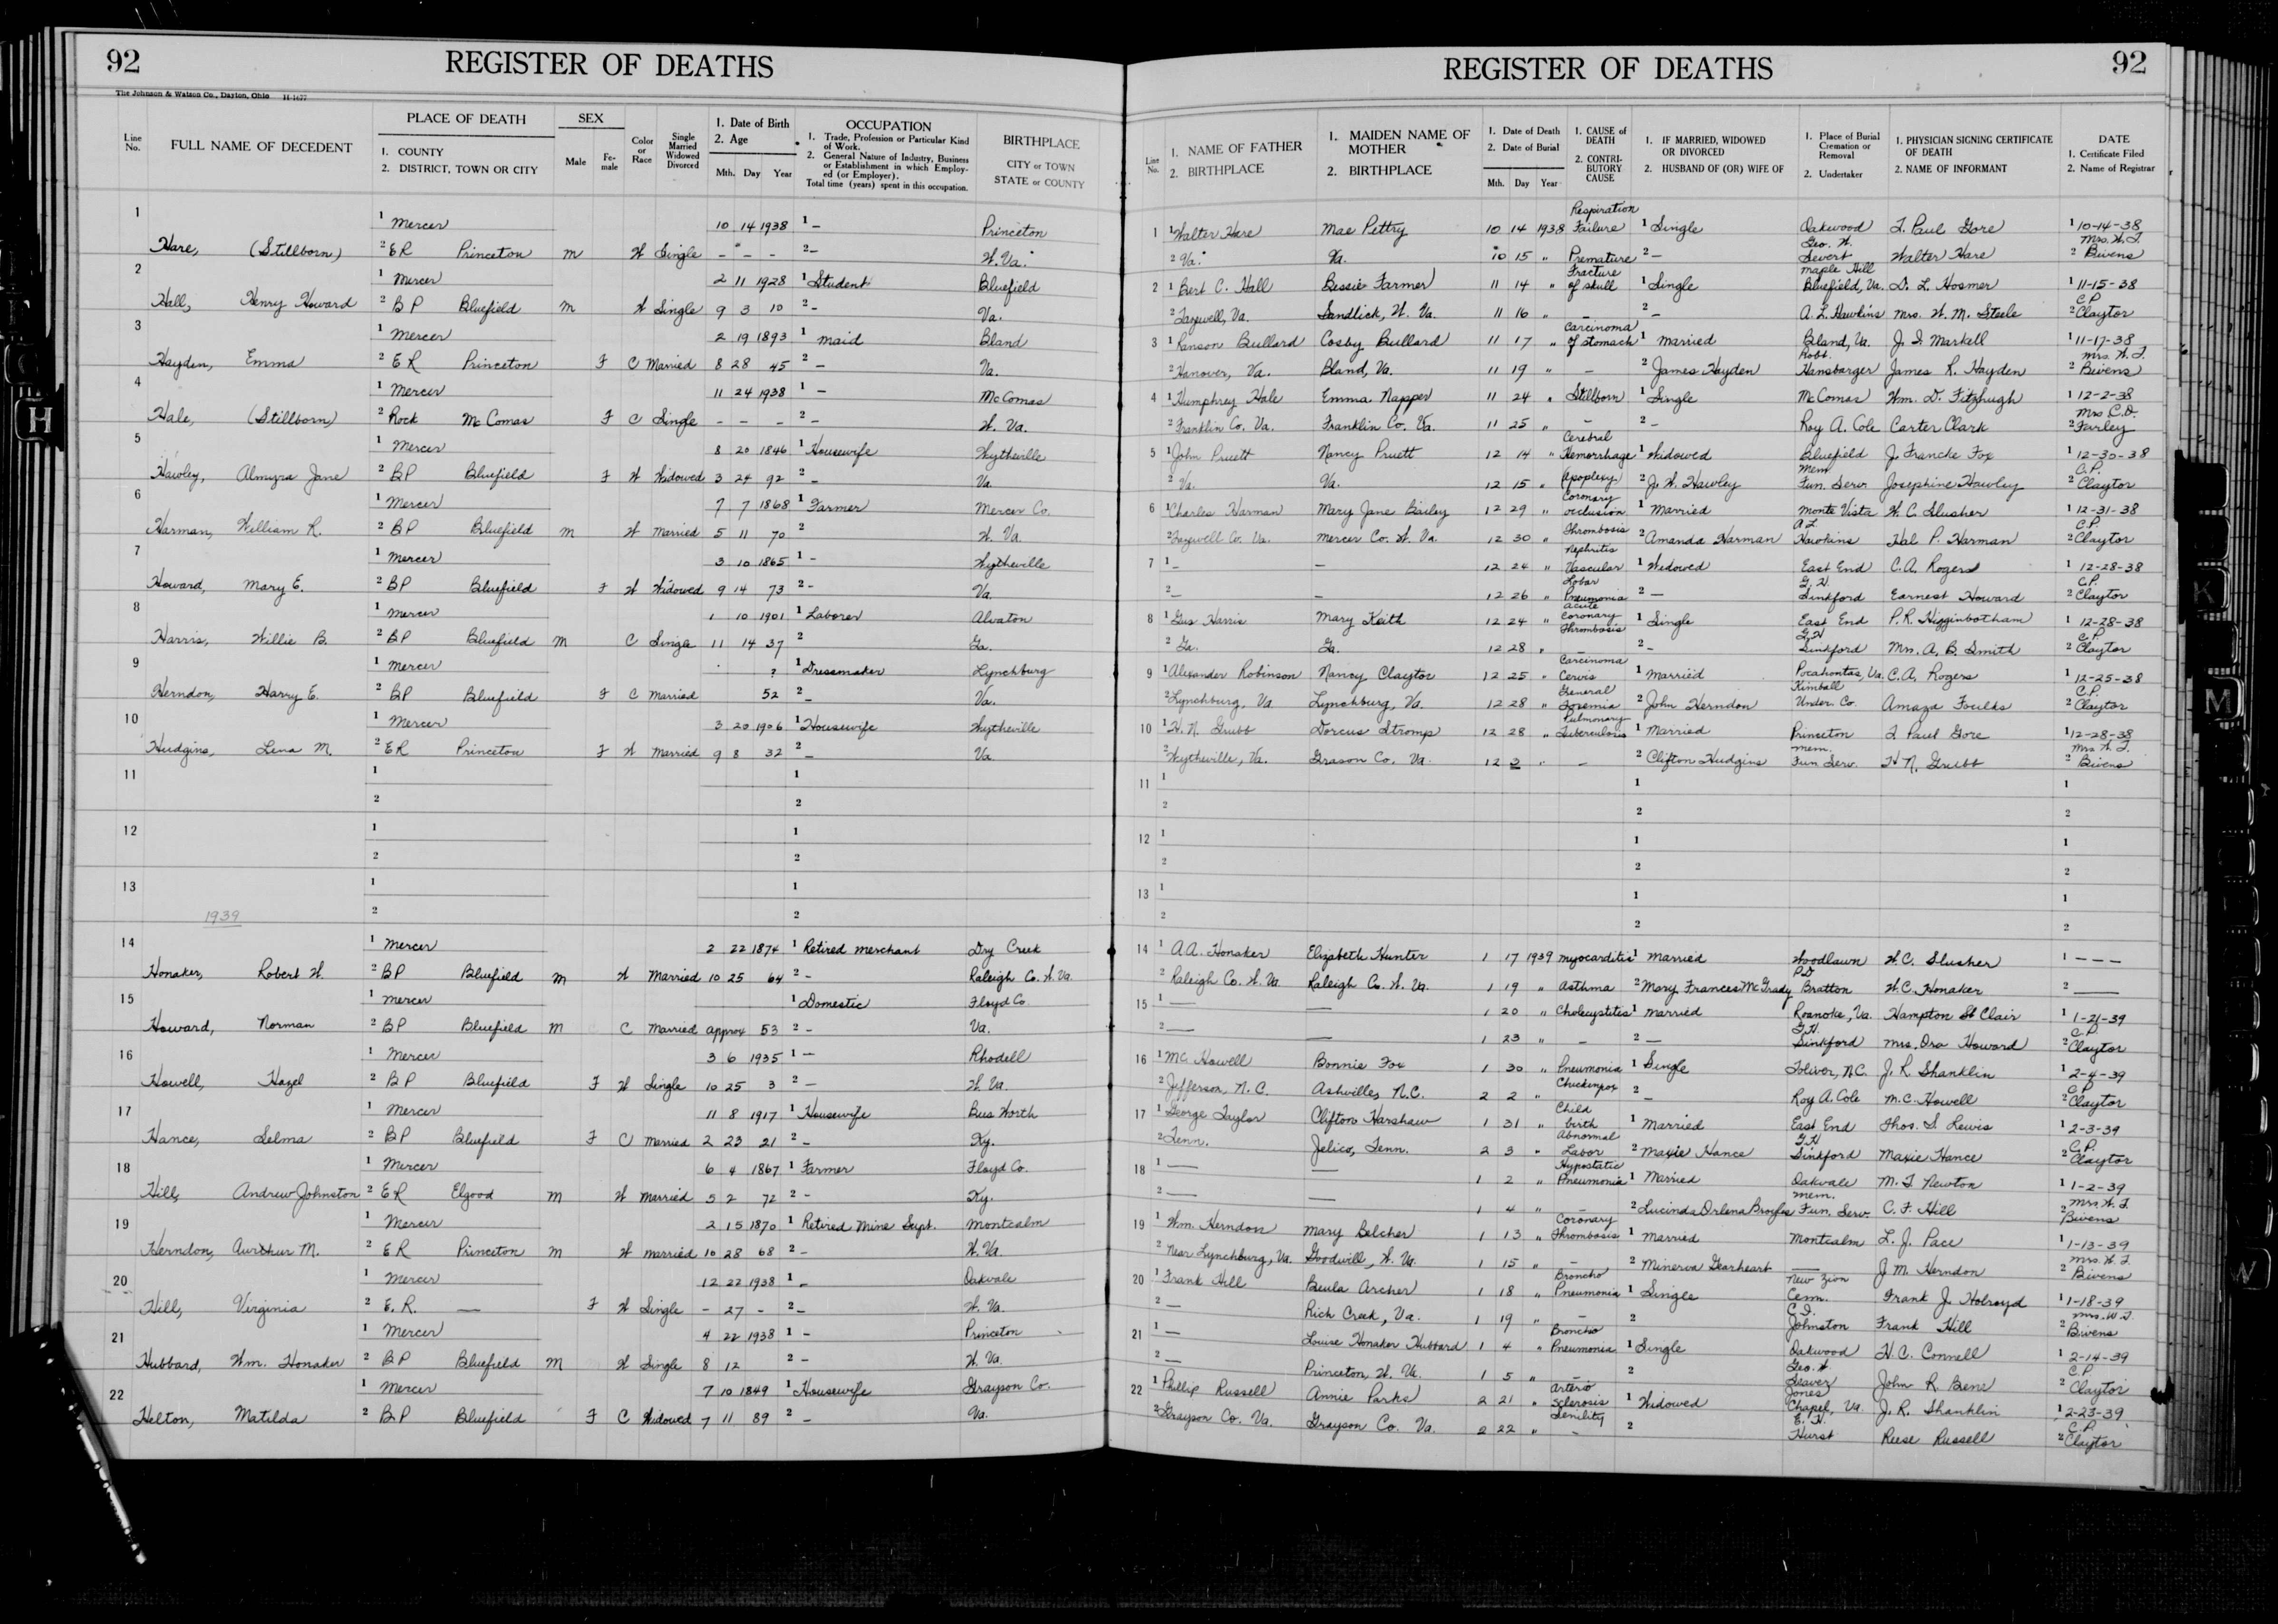 92
REGISTER OF DEATHS
The Johnson & Watson Co., Dayton, Ohio H-1677
Line No.
FULL NAME OF DECEDENT
PLACE OF DEATH
1. COUNTY
2. DISTRICT, TOWN OR CITY
SEX
Male
Fe-male
Color or Race
Single Married Widowed Divorced
1. Date of Birth
2. Age
Mth. Day Year
OCCUPATION
1. Trade, Profession or Particular Kind of Work.
2. General Nature of Industry, Business or Establishment in which Employ-ed (or Employer).
Total time (years) spent in this occupation.
BIRTHPLACE
CITY or TOWN
STATE or COUNTY
1
1 Mercer 10 14 1938 1 – Princeton
Hare, (Stillborn) 2 ER Princeton M W Single – – – 2 – W. Va.
2
1 Mercer 2 11 1928 1 Student Bluefield
Hall, Henry Howard 2 BP Bluefield M W Single 9 3 10 2 – Va.
3
1 Mercer 2 19 1893 1 maid Bland
Hayden, Emma 2 ER Princeton F C Married 8 28 45 2 – Va.
4
1 Mercer 11 24 1938 1 – McComas
Hale, (Stillborn) 2 Rock McComas F C Single – – – 2 – W. Va.
5
1 Mercer 8 20 1846 1 Housewife Wytheville
Hawley, Almyra Jane 2 BP Bluefield F W Widowed 3 24 92 2 – Va.
6
1 Mercer 7 7 1868 1 Farmer Mercer Co.
Harman, William R. 2 BP Bluefield M W Married 5 11 70 2 W. Va.
7
1 Mercer 3 10 1865 1 – Wytheville
Howard, Mary E. 2 BP Bluefield F W Widowed 9 14 73 2 – Va.
8
1 Mercer 1 10 1901 1 Laborer Alvaton
Harris, Willie B. 2 BP Bluefield M C Single 11 14 37 2 Ga.
9
1 Mercer ? 1 Dressmaker Lynchburg
Herndon, Harry E. 2 BP Bluefield F C Married 52 2 – Va.
10
1 Mercer 3 20 1906 1 Housewife Wytheville
Hudgins, Lena M. 2 ER Princeton F W Married 9 8 32 2 – Va.
11
1 1
2 2
12
1 1
2 2
13
1 1
1939 2 2
14
1 Mercer 2 22 1874 1 Retired merchant Dry Creek
Honaker, Robert W. 2 BP Bluefield M W Married 10 25 64 2 – Raleigh Co. W. Va.
15
1 Mercer 1 Domestic Floyd Co.
Howard, Norman 2 BP Bluefield M C Married approx 53 2 – Va.
16
1 Mercer 3 6 1935 1 – Rhodell
Howell, Hazel 2 BP Bluefield F W Single 10 25 3 2 – W. Va.
17
1 Mercer 11 8 1917 1 Housewife Bus Worth
Hance, Selma 2 BP Bluefield F C Married 2 23 21 2 – Ky.
18
1 Mercer 6 4 1867 1 Farmer Floyd Co.
Hill, Andrew Johnston 2 ER Elgood M W Married 5 2 72 2 – Ky.
19
1 Mercer 2 15 1870 1 Retired Mine Supt. Montcalm
Herndon, Aurthur M. 2 ER Princeton M W Married 10 28 68 2 – W. Va.
20
1 Mercer 12 22 1938 1 – Oakvale
Hill, Virginia 2 E.R. — F W Single – 27 – 2 – W. Va.
21
1 Mercer 4 22 1938 1 – Princeton
Hubbard, Wm. Honaker 2 BP Bluefield M W Single 8 12 2 – W. Va.
22
1 Mercer 7 10 1849 1 Housewife Grayson Co.
Helton, Matilda 2 BP Bluefield F C Widowed 7 11 89 2 – Va.
REGISTER OF DEATHS
92
Line No.
1. NAME OF FATHER
2. BIRTHPLACE
1. MAIDEN NAME OF MOTHER
2. BIRTHPLACE
1. Date of Death
2. Date of Burial
Mth. Day Year
1. CAUSE of DEATH
2. CONTRI-BUTORY CAUSE
1. IF MARRIED, WIDOWED OR DIVORCED
2. HUSBAND OF (OR) WIFE OF
1. Place of Burial Cremation or Removal
2. Undertaker
1. PHYSICIAN SIGNING CERTIFICATE OF DEATH
2. NAME OF INFORMANT
DATE
1. Certificate Filed
2. Name of Registrar
1 1 Walter Hare Mae Pettry 10 14 1938 Respiration Failure 1 Single Oakwood T. Paul Gore 1 10-14-38
2 Va. Va. 10 15 " Premature 2 – Geo. W. Seaver Walter Hare 2 Mrs. W. T. Bivens
2 1 Bert C. Hall Bessie Farmer 11 14 " Fracture of skull 1 Single Maple Hill Bluefield, Va. D. L. Hosmer 1 11-15-38
2 Tazewell, Va. Sandlick, W. Va. 11 16 " – 2 – A. L. Hawkins Mrs. W. M. Steele 2 C.P. Claytor
3 1 Ranson Bullard Cosby Bullard 11 17 " Carcinoma of stomach 1 Married Bland, Va. J. I. Markell 1 11-17-38
2 Hanover, Va. Bland, Va. 11 19 " – 2 James Hayden Robt. Hansbarger James R. Hayden 2 Mrs. W. T. Bivens
4 1 Humphrey Hale Emma Napper 11 24 " Stillborn 1 Single McComas Wm. D. Fitzhugh 1 12-2-38
2 Franklin Co. Va. Franklin Co. Va. 11 25 " – 2 – Roy A. Cole Carter Clark 2 Mrs C.D. Farley
5 1 John Pruett Nancy Pruett 12 14 " Cerebral Hemorrhage 1 Widowed Bluefield J. Francke Fox 1 12-30-38
2 Va. Va. 12 15 " Apoplexy 2 J. W. Hawley Mem. Fun. Serv. Josephine Hawley 2 C.P. Claytor
6 1 Charles Harman Mary Jane Bailey 12 29 " Coronary occlusion 1 Married Monte Vista W. C. Slusher 1 12-31-38
2 Tazewell Co. Va. Mercer Co. W. Va. 12 30 " Thrombosis 2 Amanda Harman A L Hawkins Hal P. Harman 2 C.P. Claytor
7 1 – – 12 24 " Nephritis Vascular 1 Widowed East End C. A. Rogers 1 12-28-38
2 – – 12 26 " Lobar Pneumonia 2 – G. H. Sinkford Earnest Howard 2 C.P. Claytor
8 1 Gus Harris Mary Keith 12 24 " Acute Coronary Thrombosis 1 Single East End P. R. Higginbotham 1 12-28-38
2 Ga. Ga. 12 28 " – 2 – G.H Sinkford Mrs. A. B. Smith 2 C.P. Claytor
9 1 Alexander Robinson Nancy Claytor 12 25 " Carcinoma Cervis 1 Married Pocahontas, Va. C. A. Rogers 1 12-25-38
2 Lynchburg, Va Lynchburg, Va. 12 28 " General Toxemia 2 John Herndon Kimball Under. Co. Amaza Foulks 2 C.P. Claytor
10 1 H. N. Grubb Dorcus Stromp 12 28 " Pulmonary Tuberculosis 1 Married Princeton T Paul Gore 1 12-28-38
2 Wytheville, Va. Grason Co. Va. 12 3 " – 2 Clifton Hudgins Mem. Fun Serv. H N. Grubb 2 Mrs W. T. Bivens
11 1 1 1
2 2 2
12 1 1 1
2 2 2
13 1 1 1
2 2 2
14 1 A.A. Honaker Elizabeth Hunter 1 17 1939 Myocarditis 1 Married Woodlawn W. C. Slusher 1 – – –
2 Raleigh Co. W. Va. Raleigh Co. W. Va. 1 19 " Asthma 2 Mary Frances McGrady P D Bratton W. C. Honaker 2 —
15 1 — — 1 20 " Cholecystites 1 Married Roanoke, Va. Hampton St Clair 1 1-21-39
2 — — 1 23 " – 2 — G.H. Sinkford Mrs. Ora Howard 2 C.P. Claytor
16 1 M.C. Howell Bonnie Fox 1 30 " Pneumonia 1 Single Toliver, N.C. J. R. Shanklin 1 2-4-39
2 Jefferson, N.C. Ashville, N.C. 2 2 " Chickenpox 2 – Roy A. Cole M.C. Howell 2 C.P. Claytor
17 1 George Taylor Clifton Harshaw 1 31 " Child birth 1 Married East End Thos. S Lewis 1 2-3-39
2 Tenn. Jelico, Tenn. 2 3 " Abnormal Labor 2 Maxie Hance G.H Sinkford Maxie Hance 2 C.P. Claytor
18 1 — — 1 2 " Hypostatic Pneumonia 1 Married Oakvale M. T Newton 1 1-2-39
2 — — 1 4 " – 2 Lucinda Orlena Broyles Mem. Fun. Serv. C. F. Hill 2 Mrs. W. T. Bivens
19 1 Wm. Herndon Mary Belcher 1 13 " Coronary Thrombosis 1 Married Montcalm L. J. Pace 1 1-13-39
2 Near Lynchburg, Va. Goodwill, W. Va. 1 15 " – 2 Minerva Gearheart — J M. Herndon 2 Mrs W. T. Bivens
20 1 Frank Hill Beula Archer 1 18 " Broncho Pneumonia 1 Single New Zion Cem. Frank J. Holroyd 1 1-18-39
2 — Rich Creek, Va. 1 19 " – 2 C.I. Johnston Frank Hill 2 Mrs. W. T. Bivens
21 1 — Louise Honaker Hubbard 1 4 " Broncho Pneumonia 1 Single Oakwood H. C. Connell 1 2-14-39
2 — Princeton, W. Va. 1 5 " – 2 Geo. W Seaver John R Bens 2 C.P. Claytor
22 1 Phillip Russell Annie Parks 2 21 " Arterio Sclerosis 1 Widowed Jones Chapel, Va. J. R. Shanklin 1 2-23-39
2 Grayson Co. Va. Grayson Co. Va. 2 22 " Senility – 2 E. H. Hurst Reese Russell 2 C.P. Claytor
H
K
M
W